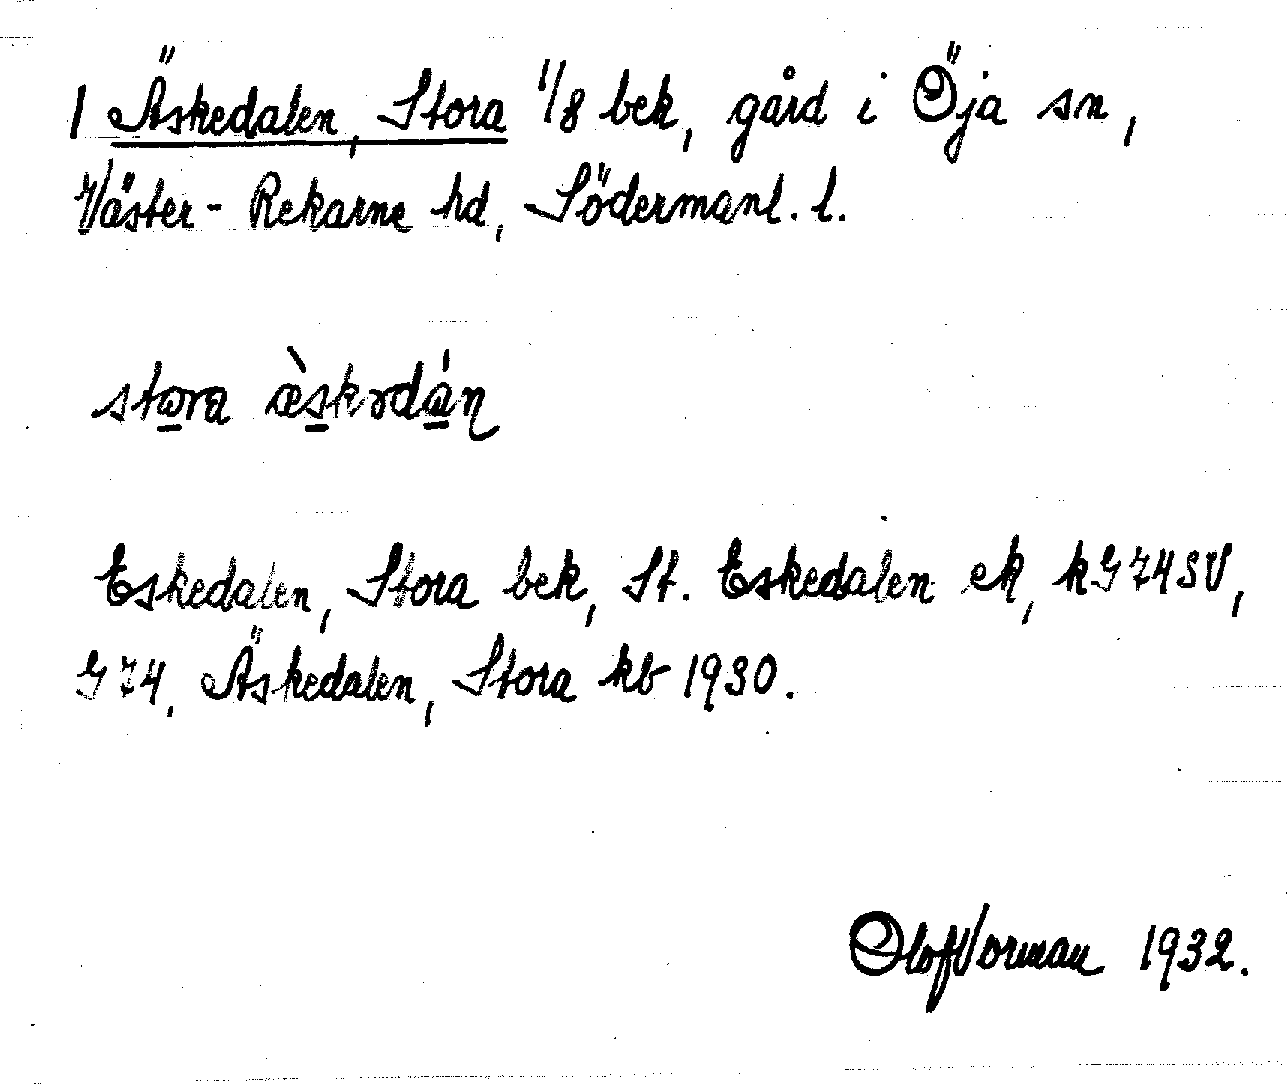 1 Äskedalen, Stora 1/8 bek, gård i Öja sn,
Väster-Rekarne hd, Södermanl. l.
stora
Eskedalen, Stora bek, St. Eskedalen ek, k G 74 SV,
G 74, Äskedalen, Stora kb 1930.
Olof Vorman 1932.